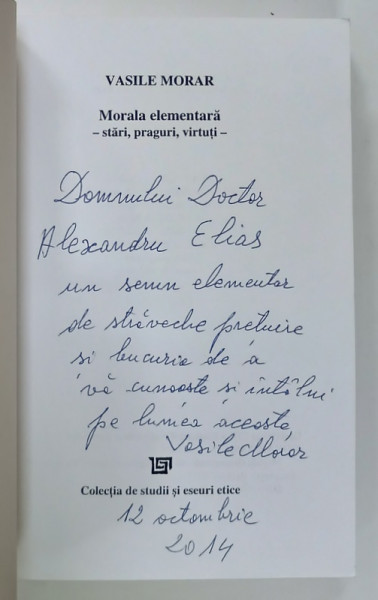 VASILE MORAR
Morala elementară
– stări, praguri, virtuți –
Domnului Doctor
Alexandru Elias
un semn elementar
de străveche prețuire
și bucuria de a
vă cunoaște și întâlni
pe lumea aceasta
Vasile Morar
Colecția de studii și eseuri etice
12 octombrie
2014